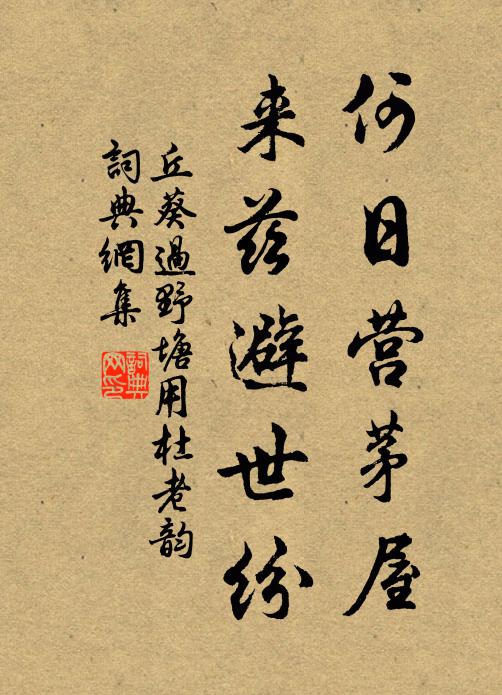 何日营茅屋
来兹避世纷
丘葵過野塘用杜老韵
詞典網集
詞典网印